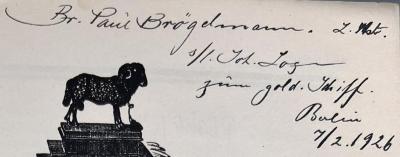 Br. Paul Brögelmann. Z. Mstr.
s/l. Joh. Loge
zum gold. Schiff.
Berlin
7/2. 1926